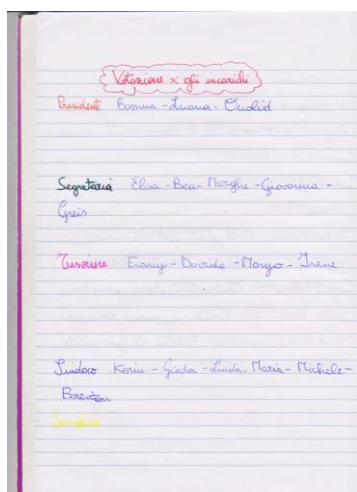 Votazione x gli incarichi
Presidente Bosnua - Luana - Cludid
Segretaria Elisa - Bea - Marghe - Giovanna -
Greis
Tesoriere Francy - Davide - Margo - Irene
Sindaco Kevin - Giada - Linda - Maria - Michele -